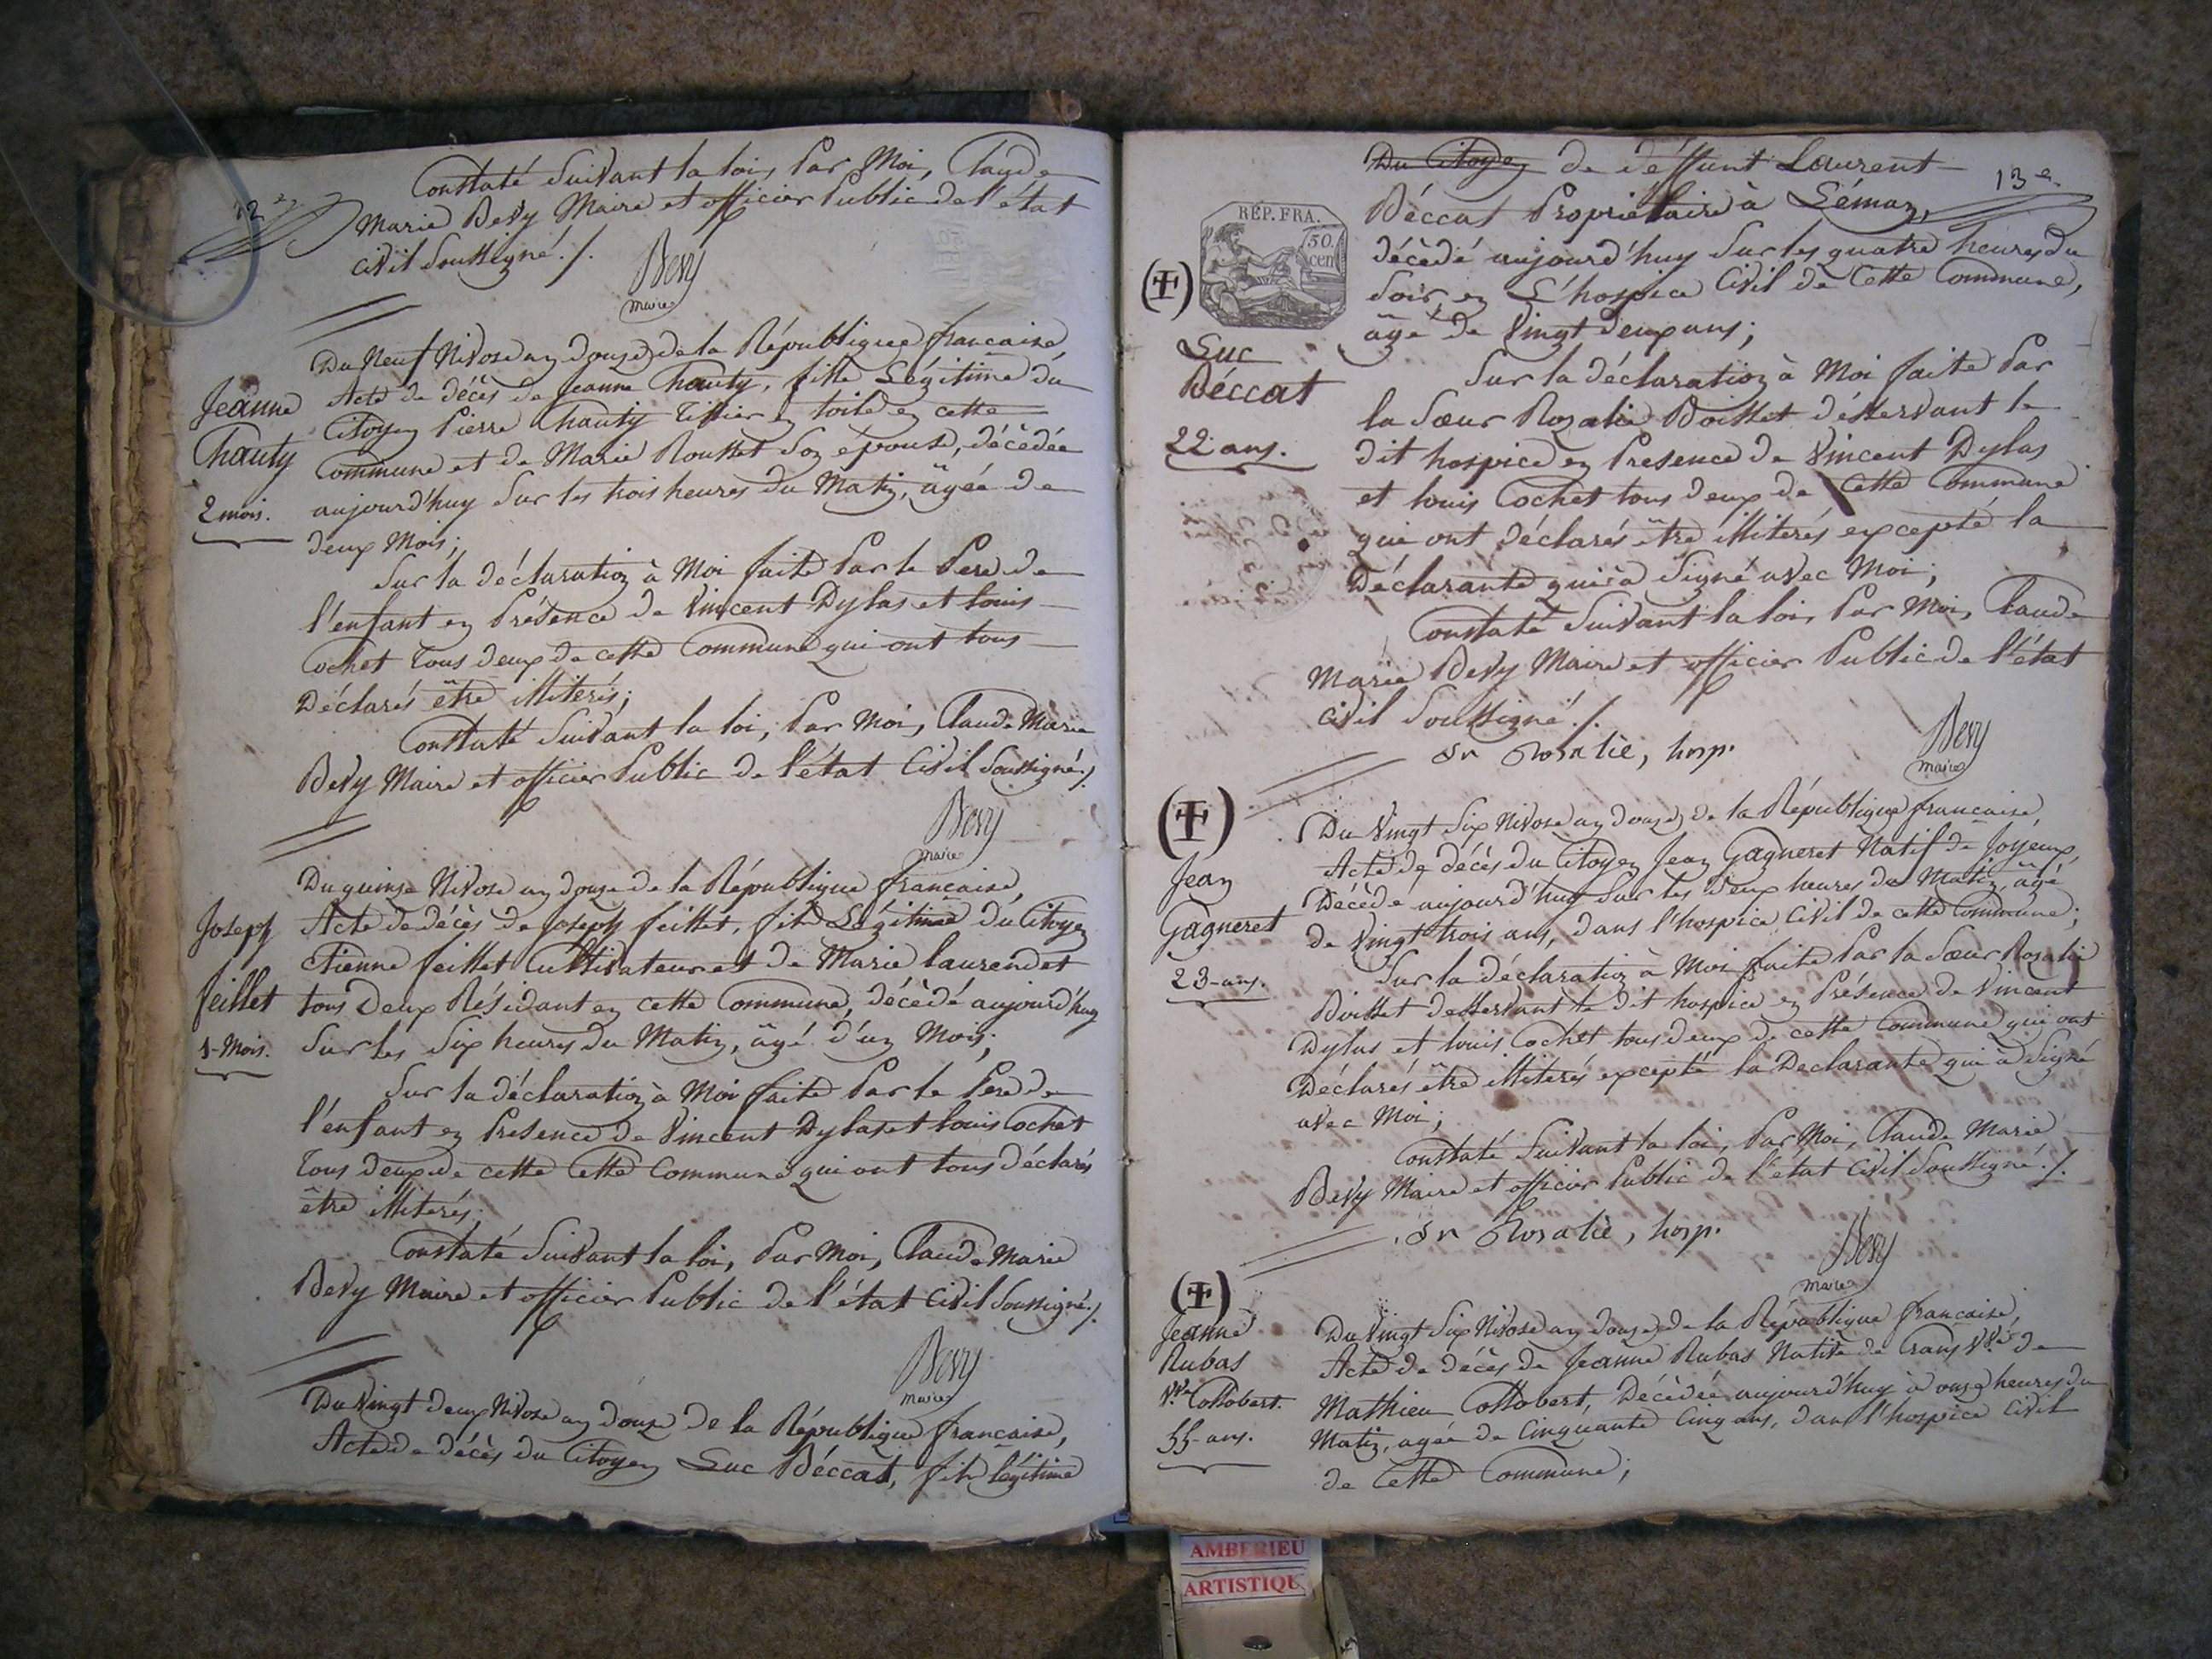 12e
Constaté Suivant la loi, Par Moi, Claude
Marie Bevy Maire et officier Public de l'état
Civil Soussigné ./.
Bevy
maire
Du Neuf Nivose an douze de la République francaise,
Jeanne
Chauty
2 mois.
Acte de décès de Jeanne Chauty, fille Légitime du
Citoyen Pierre Chauty Tissier en toile en cette
Commune et de Marie Rousset son épouse, décédée
aujourd'huy Sur les trois heures du Matin, âgée de
deux Mois;
Sur la déclaration à Moi faite Par le Pere de
l'enfant en Présence de Vincent Dylas et louis
Cochet tous deux de cette Commune qui ont tous
Déclarés être illiterés;
Constaté Suivant la loi, Par Moi, Claude Marie
Bevy Maire et officier Public de l'état Civil Soussigné ./.
Bevy
maire
Du quinze Nivose an douze de la République francaise,
Joseph
feillet
1-Mois.
Acte de décès de Joseph feillet, fils Légitime du Citoyen
Etienne feillet Cultivateur et de Marie laurendet
tous deux Résidant en cette Commune, décèdé aujourd'huy
Sur les Six heures du Matin, âgé d'un Mois;
Sur la déclaration à Moi faite Par le Pere de
l'enfant en Presence de Vincent Dylas et louis Cochet
tous deux de cette Cette Commune qui ont tous déclarés
être illiterés;
Constaté Suivant la loi, Par Moi, Claude Marie
Bevy Maire et officier Public de l'état Civil Soussigné ./.
Bevy
maire
Du Vingt deux Nivose an douze de la République francaise,
Acte de décès du Citoyen Luc Béccat, fils légitime
13e
Du Citoyen de deffunt Laurent
Béccat Propriétaire à Lémaz,
décèdé aujourd'huy Sur les quatre heures du
Soir, en L'hospice Civil de Cette Commune,
âgé de Vingt deux ans;
REP. FRA.
50.
cen
Luc
Béccat
22 ans.
Sur la déclaration à Moi faite Par
la Sœur Rozalie Boisset désservant le
dit hospice en Presence de Vincent Dylas
et louis Cochet tous deux de Cette Commune
qui ont déclarés être illiterés excepté la
Déclarante qui à Signé avec Moi;
Constaté Suivant la loi, Par Moi, Claude
Marie Bevy Maire et officier Public de l'état
Civil Soussigné ./.
Sr Rosalie, hosp.
Bevy
maire
Du Vingt Six Nivose an douze de la République francaise,
Jean
Gagneret
23-ans.
Acte de décès du Citoyen Jean Gagneret Natif de Joyeux,
Décèdé aujourd'huy Sur les deux heures du Matin, âgé
de Vingt trois ans, dans l'hospice Civil de cette Commune;
Sur la déclaration à Moi faite Par la Sœur Rozalie
Boisset desservant le dit hospice en Présence de Vincent
Dylas et louis Cochet tous deux de cette Commune qui ont
Déclarés être illiterés excepté la Declarante qui à Signé
avec Moi;
Constaté Suivant la loi, Par Moi, Claude Marie
Bevy Maire et officier Public de l'etat Civil Soussigné ./.
Sr Rosalie, hosp.
Bevy
maire
Jeanne
Rubas
Vve Collobert.
55-ans.
Du Vingt Six Nivose an douze de la République francaise,
Acte de décès de Jeanne Rubas Native de Crans Vve de
Mathieu Collobert, Décèdée aujourd'huy à onze heures du
Matin, agée de Cinquante Cinq ans, dans l'hospice Civil
de Cette Commune;
AMBERIEU
ARTISTIQU